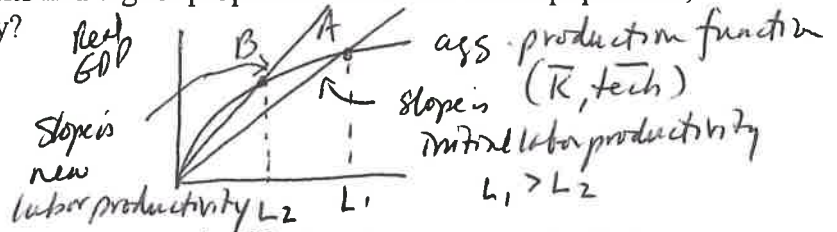 y?
Real
GDP
B
A
agg. production function
(K̄, tech)
Slope is
new
labor productivity
slope is
initial labor productivity
L2
L1
L1 > L2